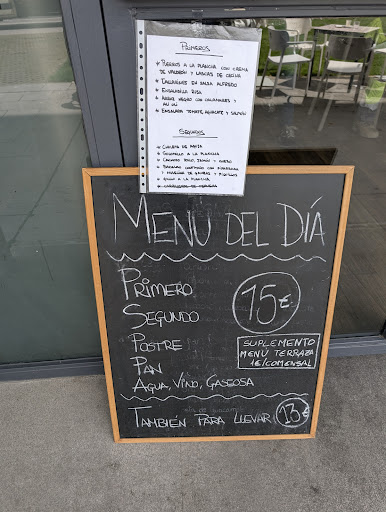 PRIMEROS
A LA PLANCHA CON CREMA
DE VALDEÓN Y LASCAS DE CECINA
EN SALSA ALFREDO
ENSALADILLA RUSA
ARROZ NEGRO CON CALAMARES Y
ALI OLI
ENSALADA TOMATE, AGUACATE Y SALMÓN
SEGUNDOS
A LA PLANCHA
CACHOPO POLLO, JAMÓN Y QUESO
BACALAO CONFITADO CON
Y GAMBAS Y
A LA PLANCHA
MENÚ DEL DÍA
PRIMERO
SEGUNDO
POSTRE
PAN
AGUA, VINO, GASEOSA
15€
SUPLEMENTO
MENÚ TERRAZA
1€/COMENSAL
TAMBIÉN PARA LLEVAR 13€